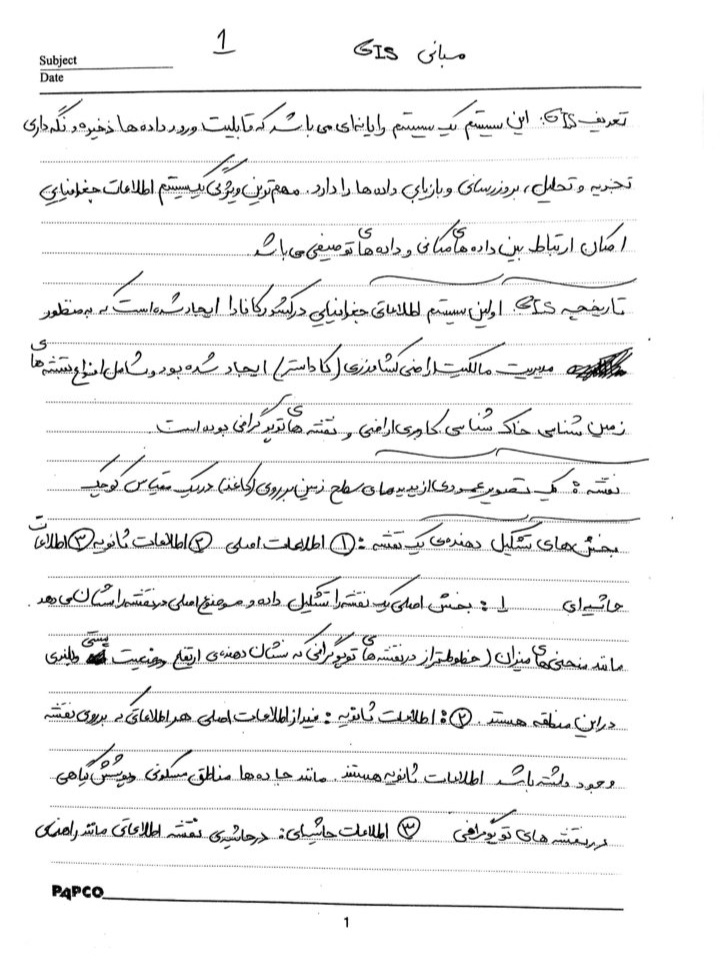 1
مبانی GIS
Subject
Date
تعریف GIS: این سیستم یک سیستم رایانه‌ای می باشد که قابلیت ورود داده ها ذخیره و نگه داری
تجزیه و تحلیل، بروزرسانی و بازیابی داده ها را دارد. مهم ترین ویژگی یک سیستم اطلاعات جغرافیایی
امکان ارتباط بین داده های مکانی و داده های توصیفی می باشد.
تاریخچه GIS: اولین سیستم اطلاعاتی جغرافیایی در کشور کانادا ایجاد شده است که به منظور
مدیریت مالکیت اراضی کشاورزی (کاداستر) ایجاد شده بود و شامل انواع نقشه های
زمین شناسی خاک شناسی کاربری اراضی و نقشه های توپوگرافی بوده است.
نقشه: یک تصویر عمودی از پدیده های سطح زمین بر روی (کاغذ) در یک مقیاس کوچک
بخش های تشکیل دهنده‌ی یک نقشه: ① اطلاعات اصلی ② اطلاعات ثانویه ③ اطلاعات
حاشیه‌ای 1: بخش اصلی یک نقشه را تشکیل داده و موضوع اصلی در نقشه را نشان می دهد.
مانند منحنی های میزان (خطوط تراز در نقشه های توپوگرافی که نشان دهنده‌ی ارتفاع وضعیت پستی و بلندی
در این منطقه هستند. ②: اطلاعات ثانویه: غیر از اطلاعات اصلی هر اطلاعاتی که بر روی نقشه
وجود داشته باشد اطلاعات ثانویه هستند مانند جاده ها مناطق مسکونی و پوشش گیاهی
در نقشه های توپوگرافی ③ اطلاعات حاشیه‌ای: در حاشیه‌ی نقشه اطلاعاتی مانند راهنمای
PAPCO
1